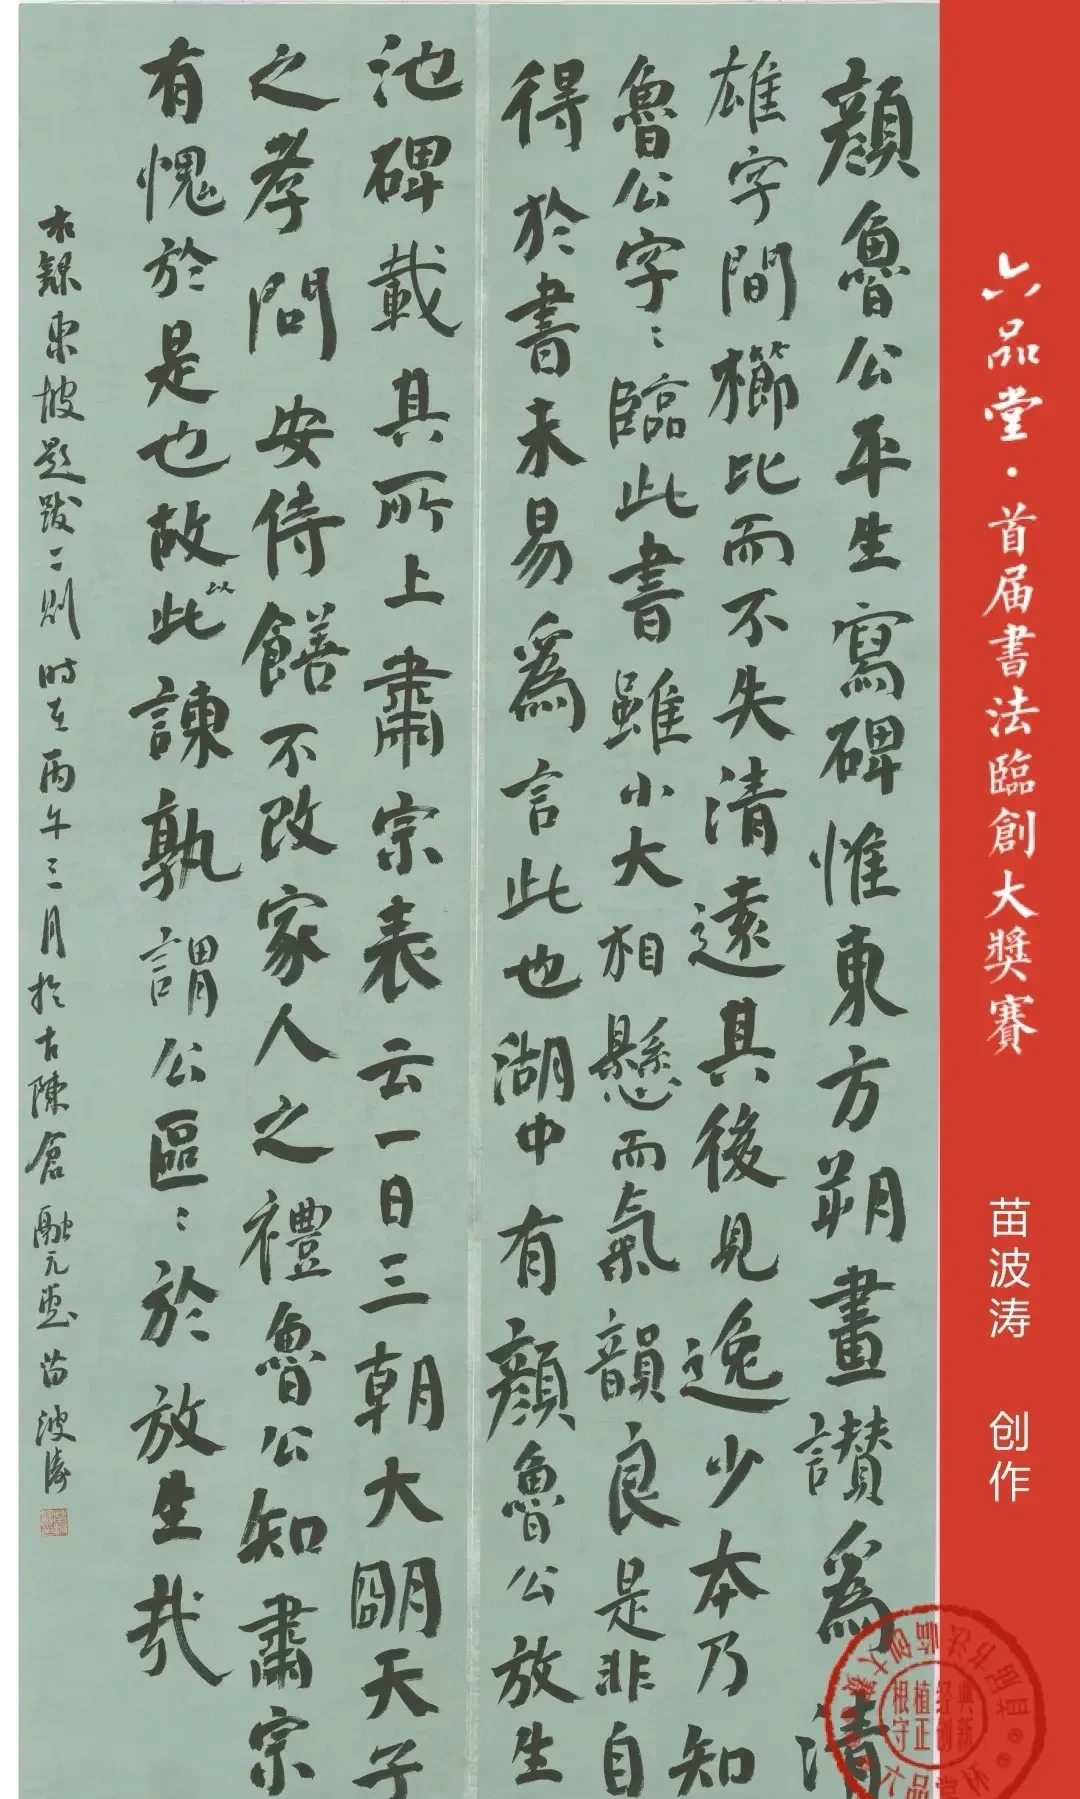 六品堂·首届書法臨創大獎賽
苗波涛 创作
顏魯公平生寫碑惟東方朔畫讃爲清
雄字間櫛比而不失清遠其後見逸少本乃知
魯公字〻臨此書雖小大相懸而氣韻良是非自
得於書未易爲言此也湖中有顏魯公放生
池碑載其所上肅宗表云一日三朝大朙天子
之孝問安侍饍不改家人之禮魯公知肅宗
有愧於是也故以此諫孰謂公區〻於放生哉
右録東坡題跋二則时在丙午三月於古陳倉融元堂苗波濤
根植经典
守正创新